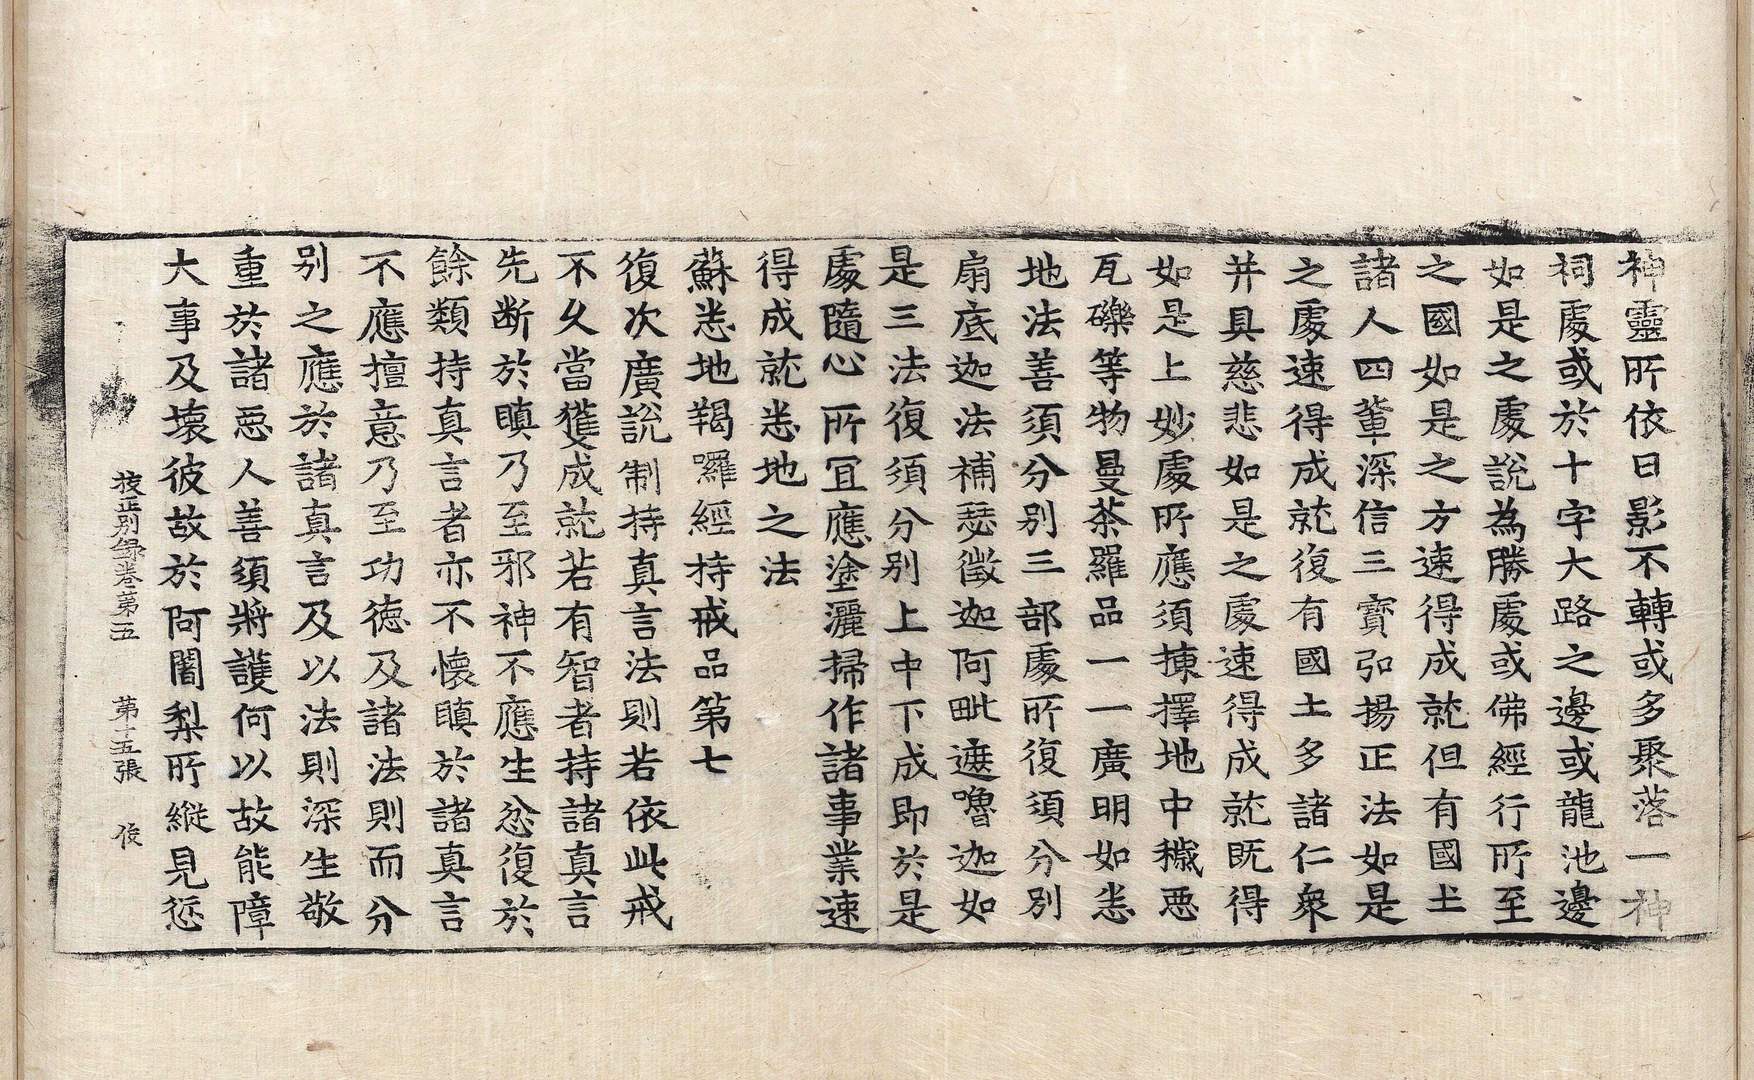 神靈所依日影不轉或多聚落一神
祠處或於十字大路之邊或龍池邊
如是之處說為勝處或佛經行所至
之國如是之方速得成就但有國土
諸人四輩深信三寶弘揚正法如是
之處速得成就復有國土多諸仁衆
并具慈悲如是之處速得成就旣得
如是上妙處所應須揀擇地中穢惡
瓦礫等物曼荼羅品一一廣明如悉
地法善須分別三部處所復須分別
扇底迦法補瑟徵迦阿毗遮嚕迦如
是三法復須分別上中下成卽於是
處隨心所冝應塗灑掃作諸事業速
得成就悉地之法
蘇悉地羯囉經持戒品第七
復次廣說制持真言法則若依此戒
不久當獲成就若有智者持諸真言
先斷於瞋乃至邪神不應生忿復於
餘類持真言者亦不懷瞋於諸真言
不應擅意乃至功德及諸法則而分
別之應於諸真言及以法則深生敬
重於諸惡人善須將護何以故能障
大事及壞彼故於阿闍梨所縱見愆
校正別錄卷第五 第十五張 俊